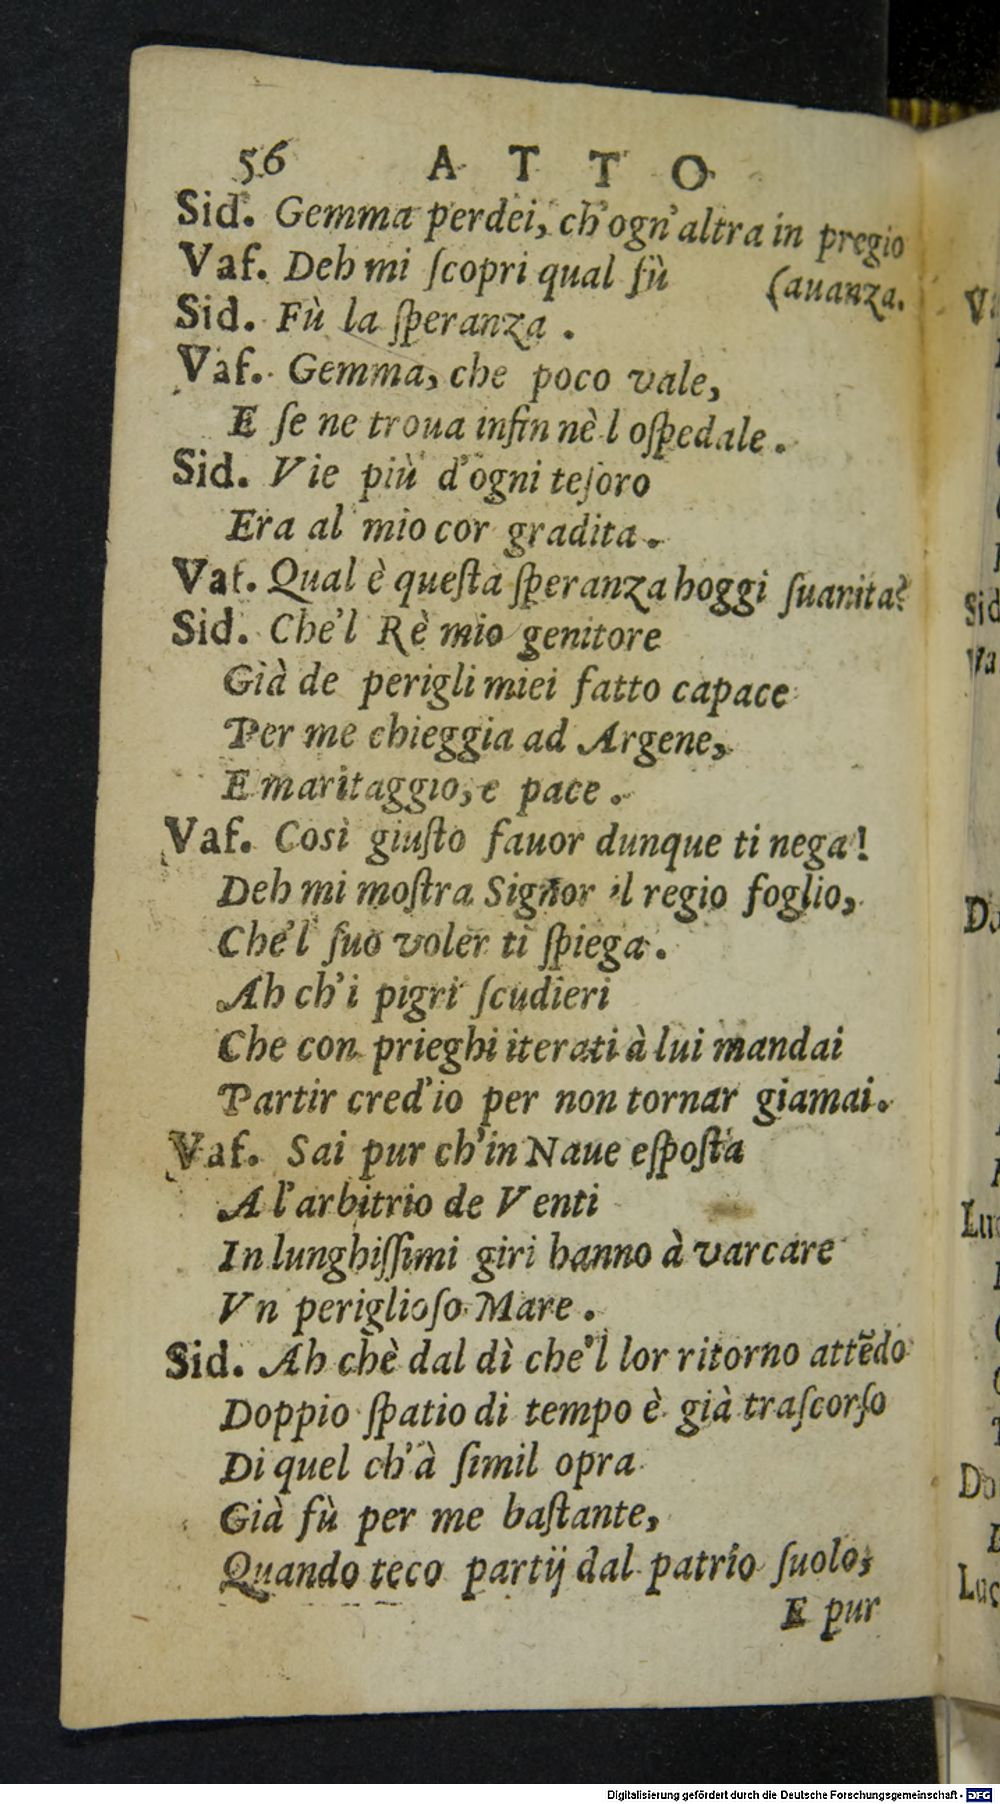 56 ATTO
Sid. Gemma perdei, ch'ogn'altra in pregio
Vaf. Deh mi ſcopri qual fù (auanza.
Sid. Fù la ſperanza.
Vaf. Gemma, che poco vale,
E ſe ne troua infin nè l oſpedale.
Sid. Vie più d'ogni teſoro
Era al mio cor gradita.
Vaf. Qual è queſta ſperanza hoggi ſuanita?
Sid. Che'l Rè mio genitore
Già de perigli miei fatto capace
Per me chieggia ad Argene,
E maritaggio, e pace.
Vaf. Così giuſto fauor dunque ti nega!
Deh mi moſtra Signor il regio foglio,
Che'l ſuo voler ti ſpiega.
Ah ch'i pigri ſcudieri
Che con prieghi iterati à lui mandai
Partir cred'io per non tornar giamai.
Vaf. Sai pur ch'in Naue eſpoſta
A l'arbitrio de Venti
In lunghiſſimi giri hanno à varcare
Vn periglioſo Mare.
Sid. Ah chè dal dì che'l lor ritorno attẽdo
Doppio ſpatio di tempo è già traſcorſo
Di quel ch'à ſimil opra
Già fù per me baſtante,
Quando teco partij dal patrio ſuolo,
E pur
V
Sid
Va
Do
Lu
Do
Luc
Digitalisierung gefördert durch die Deutsche Forschungsgemeinschaft - DFG